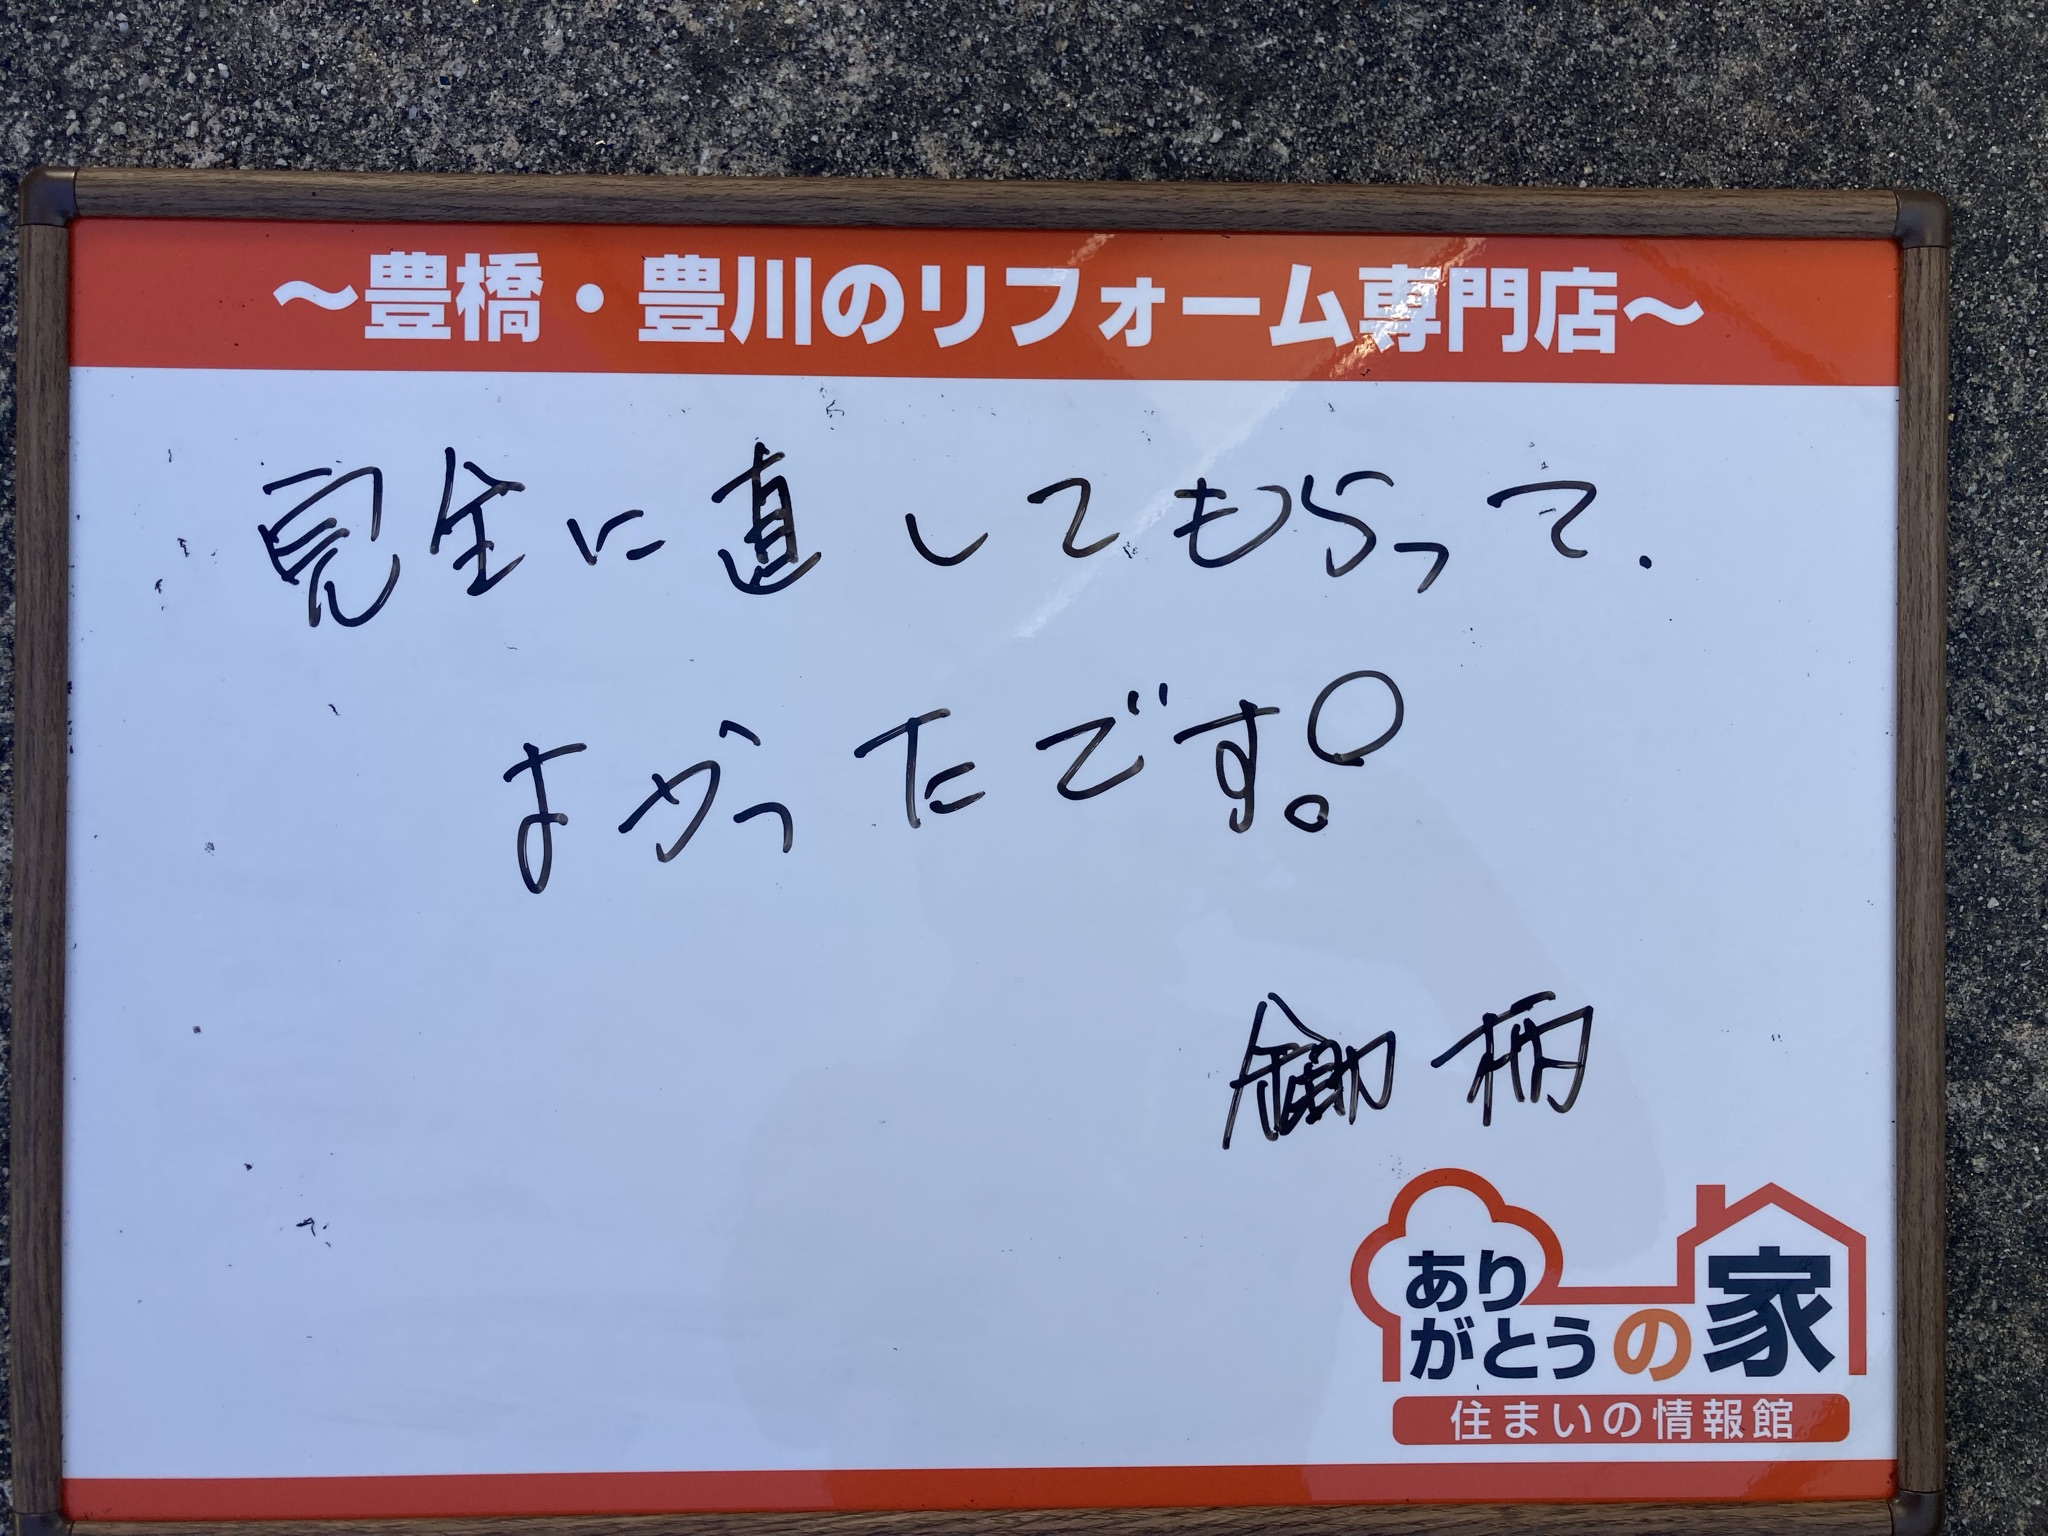 〜豊橋・豊川のリフォーム専門店〜
完全に直してもらって.
よかったです!
鋤柄
ありがとうの家
住まいの情報館